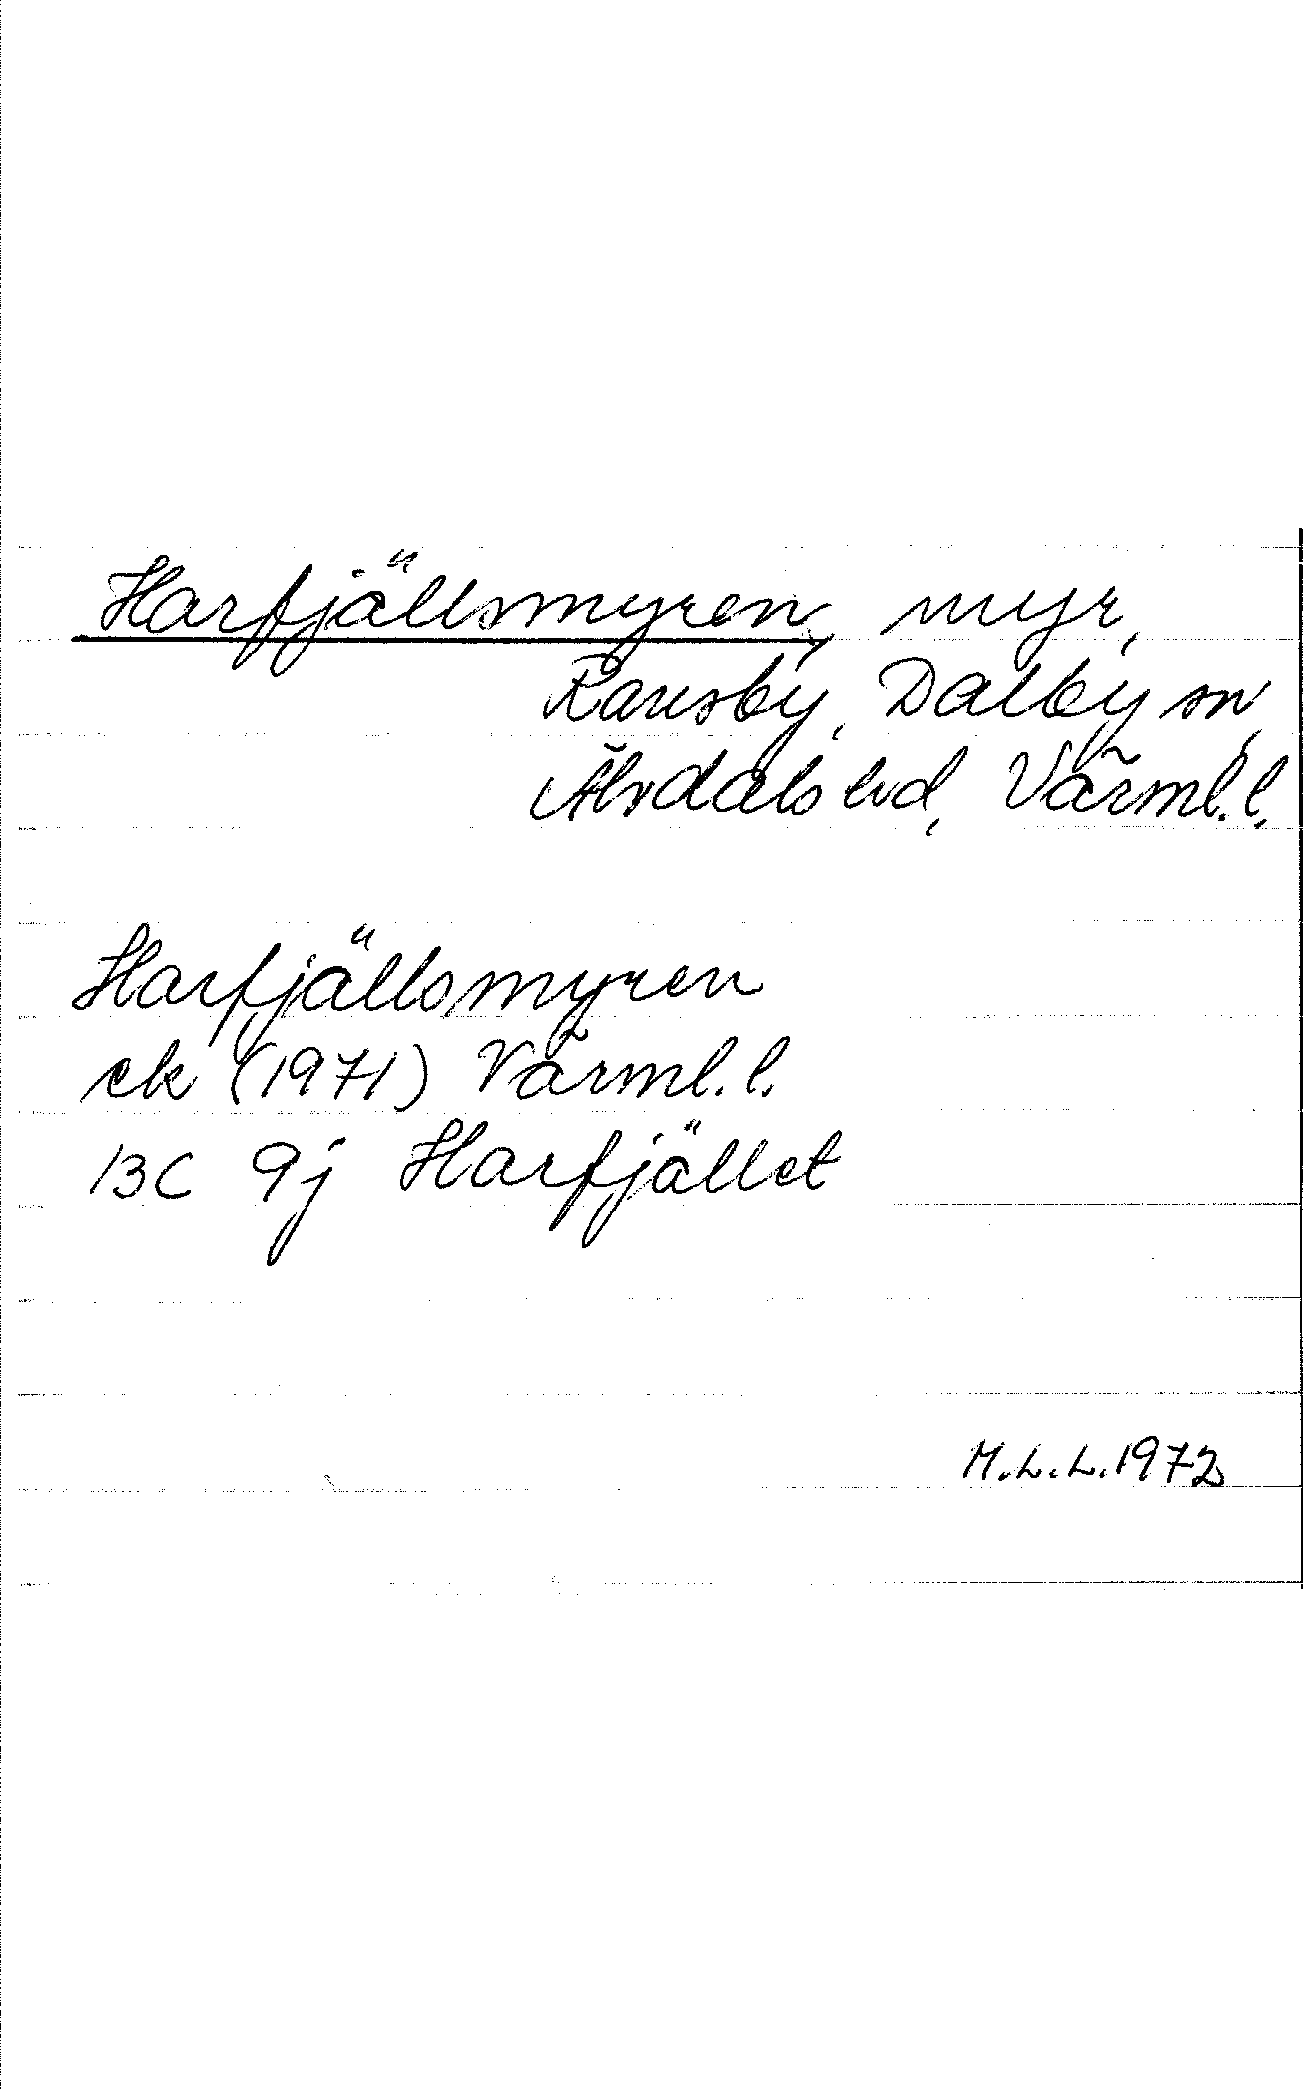 Harfjällsmyren, myr,
Ransby, Dalby sn,
Älvdals hd, Värml. l.
Harfjällsmyren
ek (1971) Värml. l.
13C 9j Harfjället
M.L.L. 1972